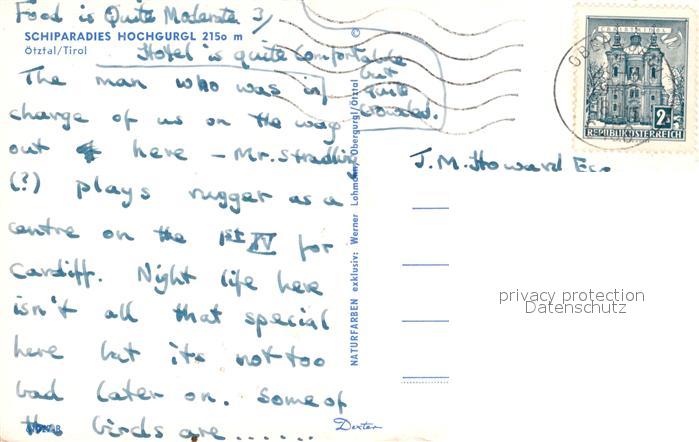 Food is Quite Moderate 3/
SCHIPARADIES HOCHGURGL 2150 m
Ötztal/Tirol
Hotel is quite comfortable
but
quite
crowded.
The man who was in
charge of us on the way
out here – Mr. Stradling
(?) plays rugger as a
centre on the 1st IV for
Cardiff. Night life here
isn't all that special
here but its not too
bad later on. Some of
the birds are ......
NATURFARBEN exklusiv: Werner Lohmann, Obergurgl/Ötztal
©
Dexter
CHRISTKINDL
2
REPUBLIK ÖSTERREICH
J.M. Howard Esq
privacy protection
Datenschutz